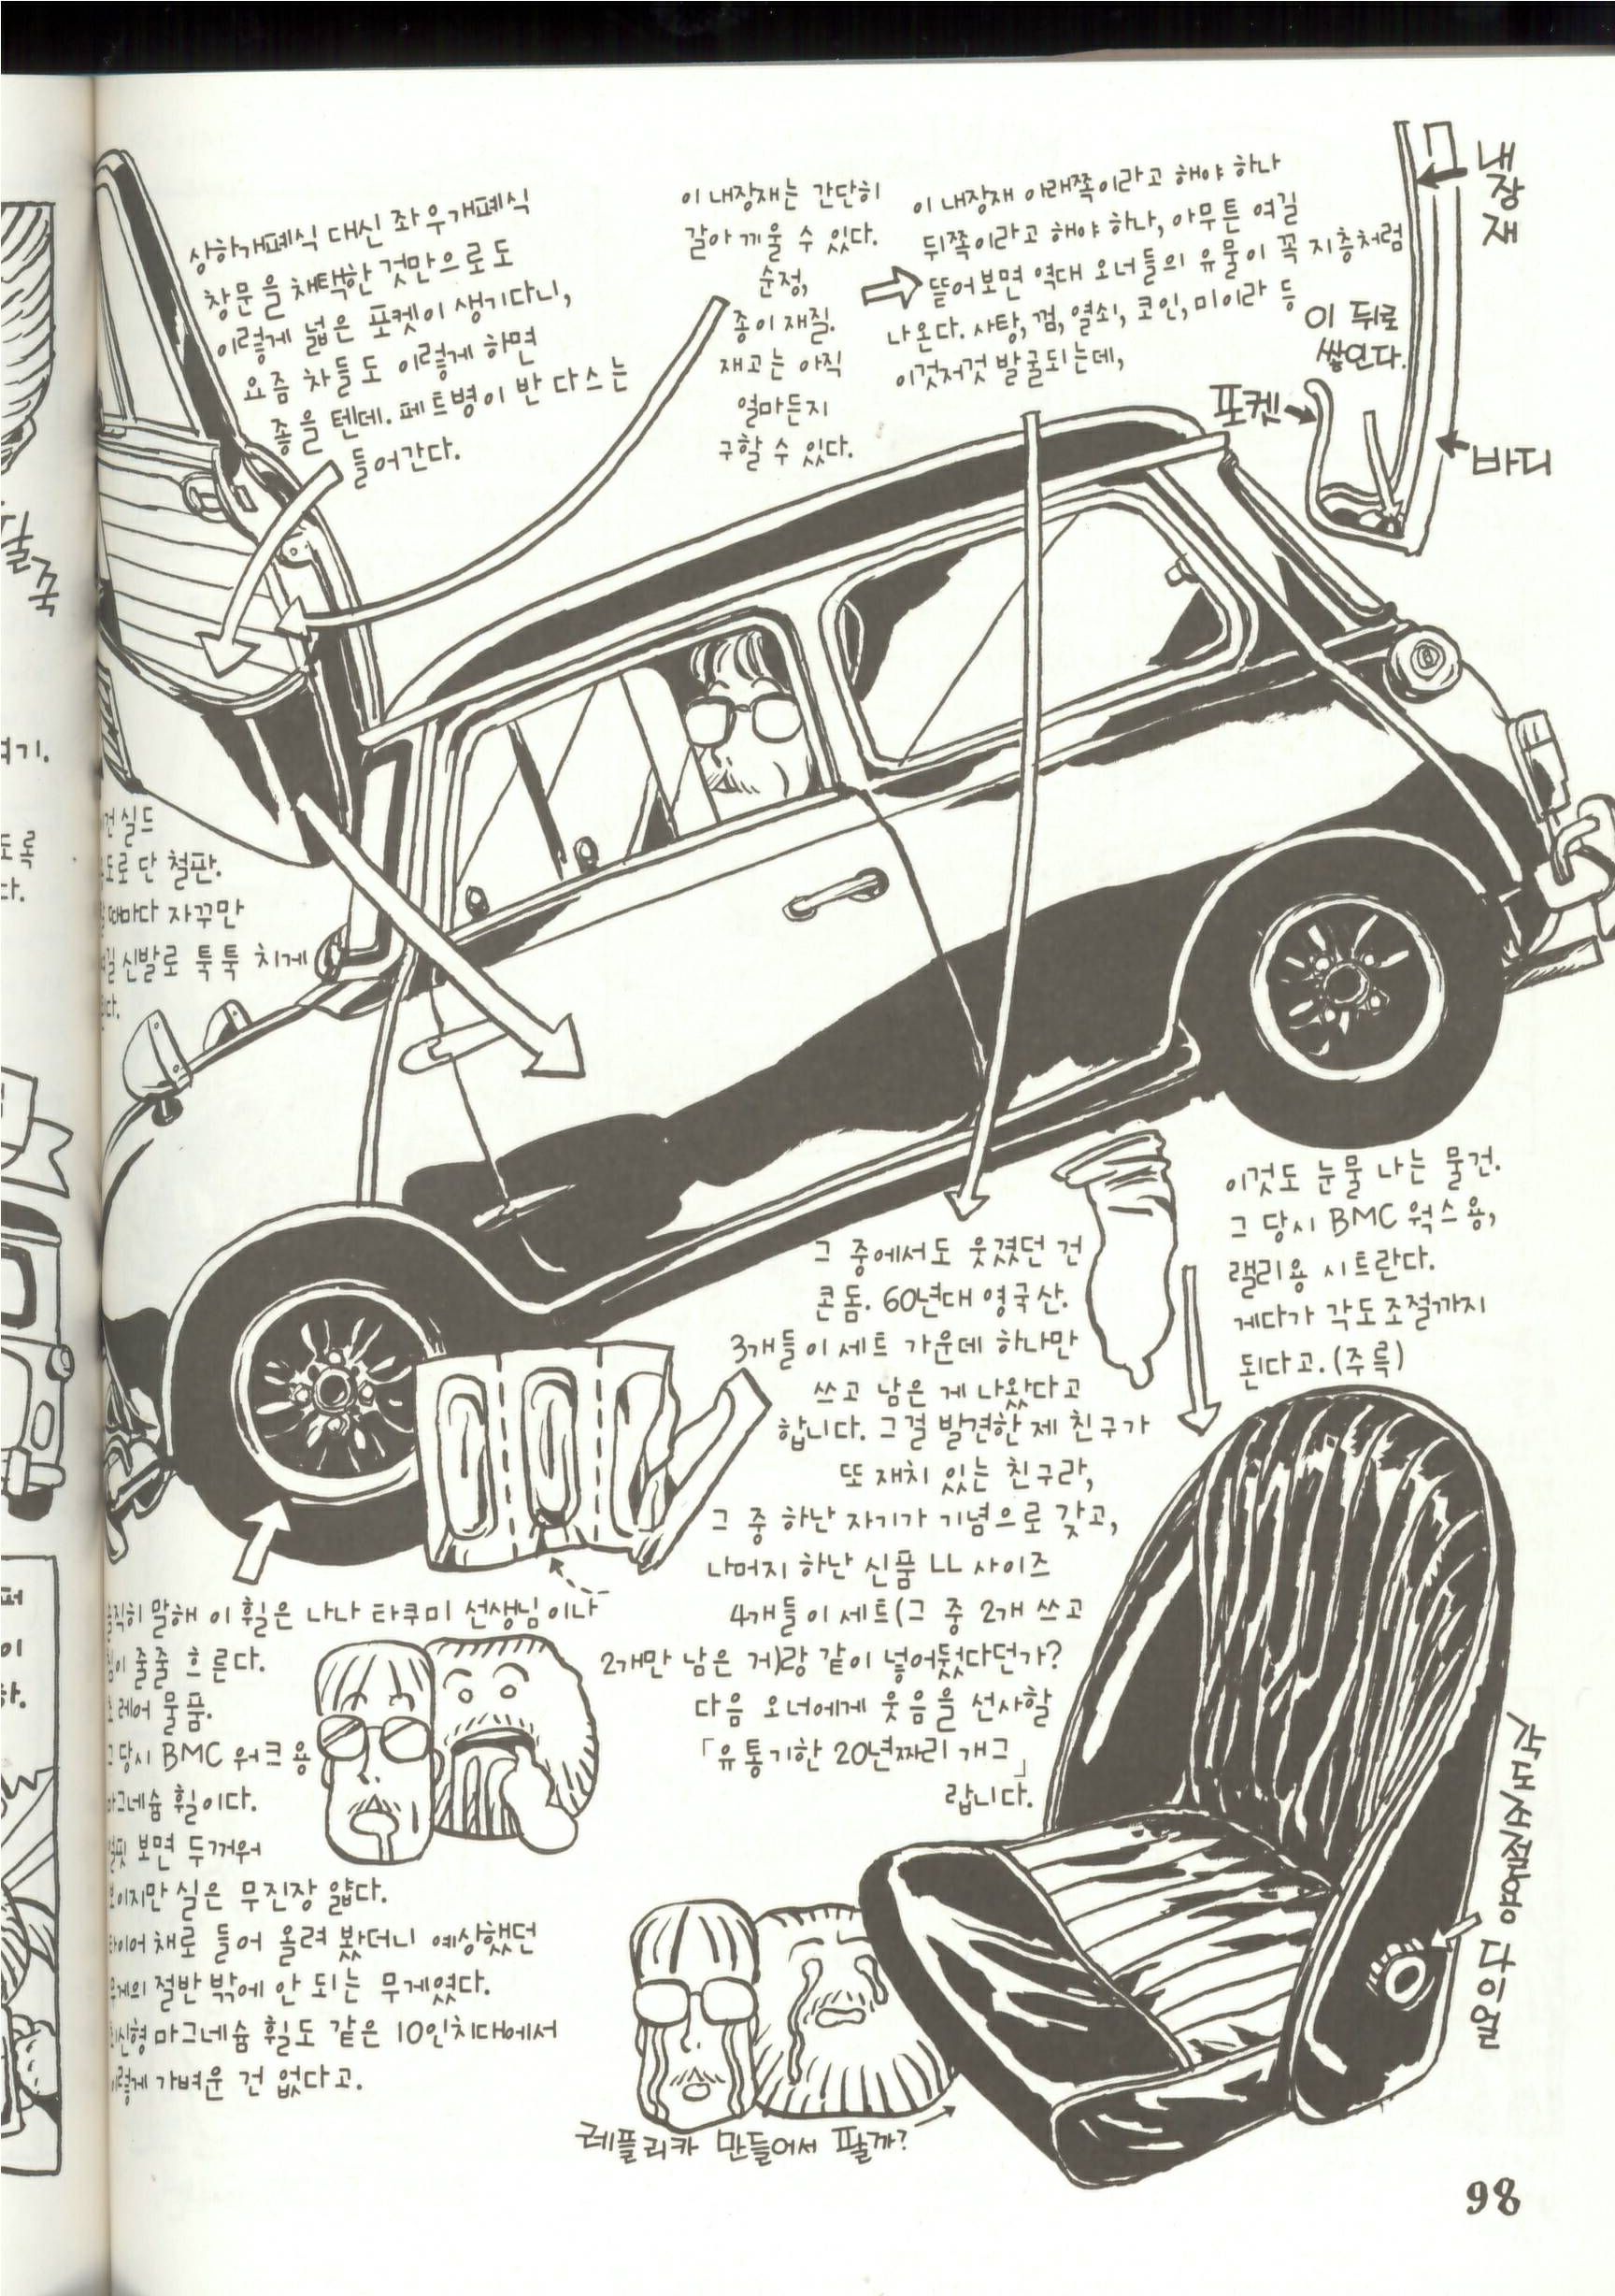 상하개폐식 대신 좌우개폐식
창문을 채택한 것만으로도
이렇게 넓은 포켓이 생기다니,
요즘 차들도 이렇게 하면
좋을 텐데. 페트병이 반 다스는
들어간다.
이 내장재는 간단히
갈아끼울 수 있다.
순정,
종이 재질.
재고는 아직
얼마든지
구할 수 있다.
이 내장재 아래쪽이라고 해야 하나
뒤쪽이라고 해야 하나, 아무튼 여길
뜯어보면 역대 오너들의 유물이 꼭 지층처럼
나온다. 사탕, 껌, 열쇠, 코인, 미이라 등
이것저것 발굴되는데,
내장재
이 뒤로
쌓인다.
포켓
바디
실드
로 단 철판.
때마다 자꾸만
신발로 툭툭 치게
다.
그 중에서도 웃겼던 건
콘돔. 60년대 영국산.
3개들이 세트 가운데 하나만
쓰고 남은 게 나왔다고
합니다. 그걸 발견한 제 친구가
또 재치 있는 친구라,
그 중 하난 자기가 기념으로 갖고,
나머지 하난 신품 LL 사이즈
4개들이 세트(그 중 2개 쓰고
2개만 남은 거)랑 같이 넣어뒀다던가?
다음 오너에게 웃음을 선사할
「유통기한 20년짜리 개그」
랍니다.
이것도 눈물 나는 물건.
그 당시 BMC 웍스용,
랠리용 시트란다.
게다가 각도조절까지
된다고. (주륵)
솔직히 말해 이 휠은 나나 타쿠미 선생님이나
침이 줄줄 흐른다.
초 레어 물품.
그 당시 BMC 워크용
마그네슘 휠이다.
얼핏 보면 두꺼워
보이지만 실은 무진장 얇다.
타이어 채로 들어 올려 봤더니 예상했던
무게의 절반 밖에 안 되는 무게였다.
최신형 마그네슘 휠도 같은 10인치대에서
이렇게 가벼운 건 없다고.
각도조절용 다이얼
레플리카 만들어서 팔까?
98